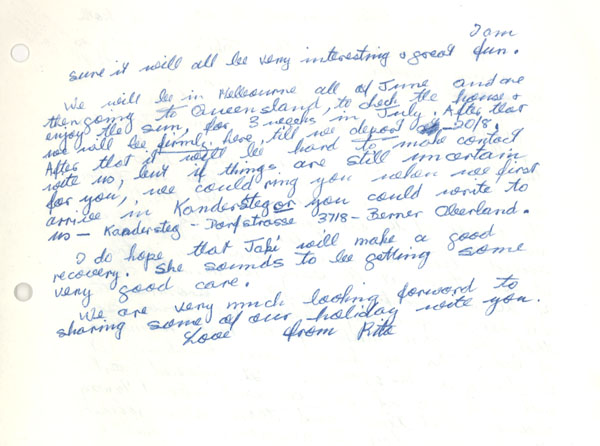 I am
sure it will all be very interesting & great fun.
We will be in Melbourne all of June and are
then going to Queensland, to check the house &
enjoy the sun, for 3 weeks in July. After that
we will be firmly here, till we depart 20/8.
After that it will be hard to make contact
with us, but if things are still uncertain
for you, we could ring you when we first
arrive in Kandersteg or you could write to
us - Kandersteg - Dorfstrasse 3718 - Berner Oberland.
I do hope that Jaki will make a good
recovery. She sounds to be getting some
very good care.
We are very much looking forward to
sharing some of our holiday with you.
Love from Ritta